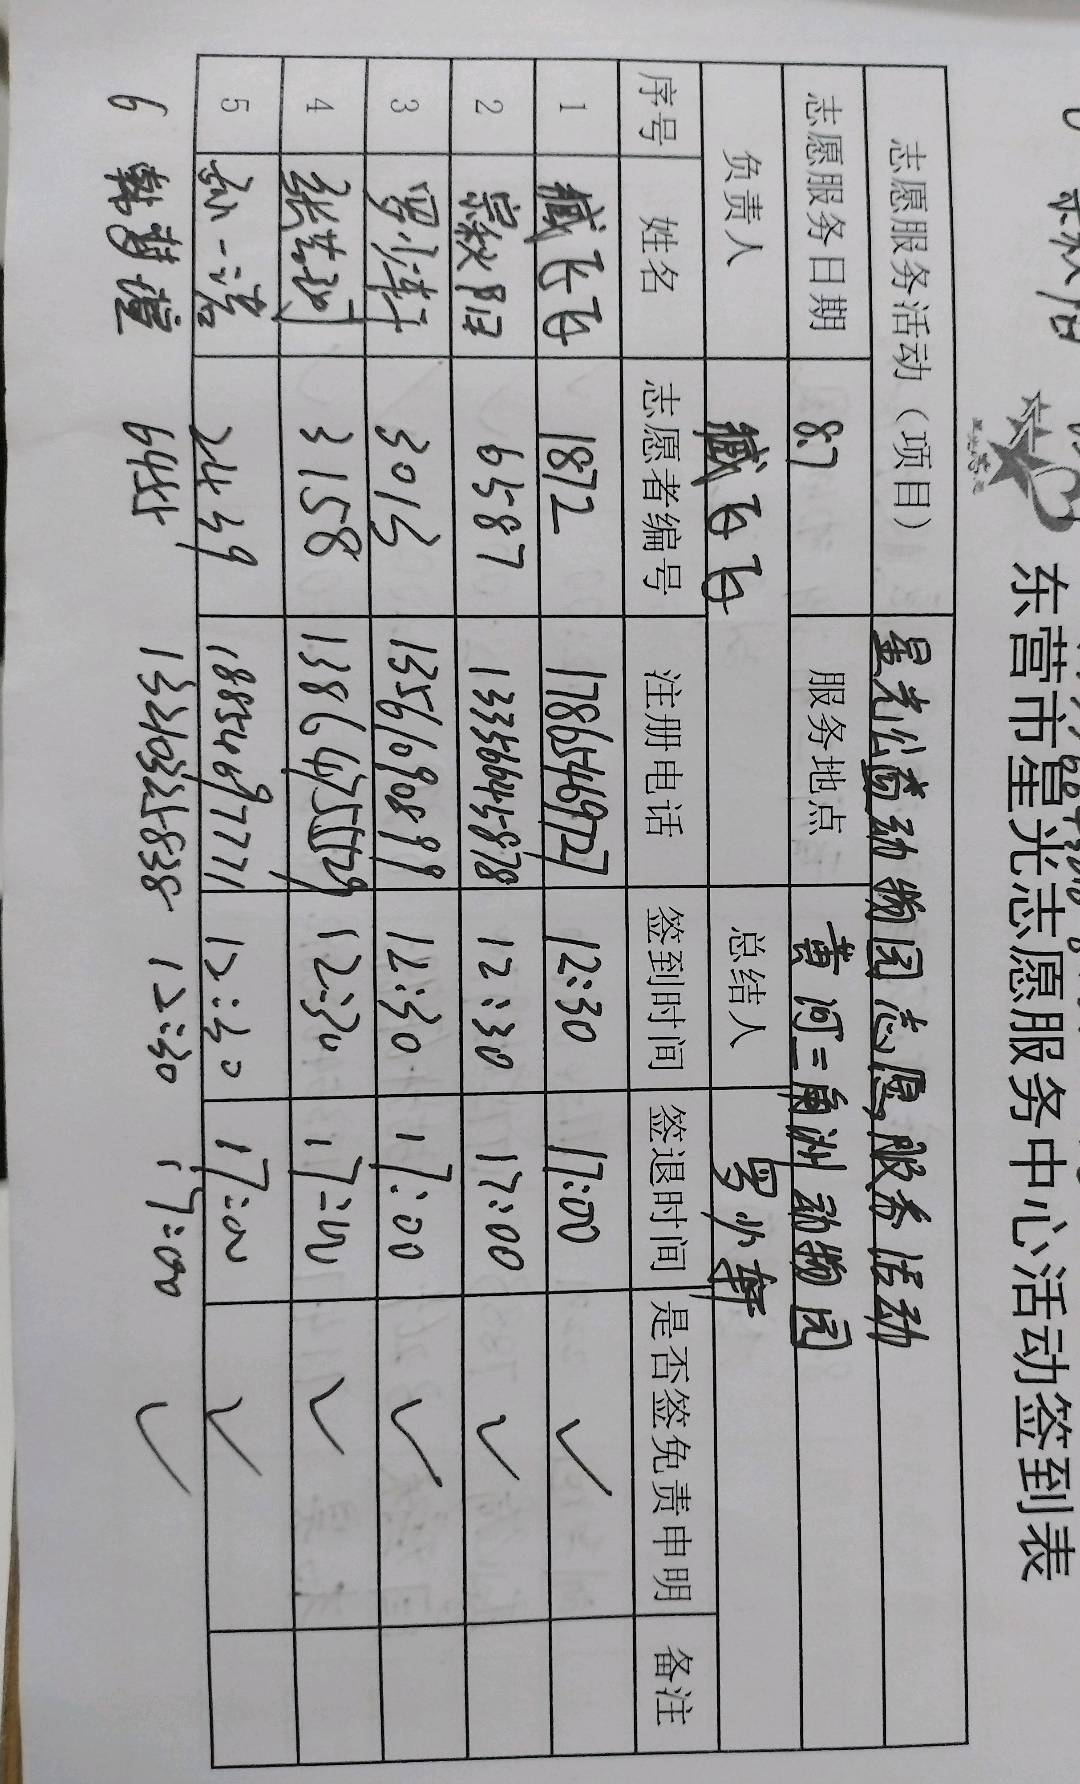 东营市星光志愿服务中心活动签到表
志愿服务活动（项目） 星光公益动物园志愿服务活动
志愿服务日期 8.7 服务地点 黄河三角洲动物园
负责人 臧飞飞 总结人 罗少轩
序号 姓名 志愿者编号 注册电话 签到时间 签退时间 是否签免责申明 备注
1 臧飞飞 1872 17865469727 12:30 17:00 ✓
2 6587 13356645878 12:30 17:00 ✓
3 罗少轩 3013 13561690899 12:30 17:00 ✓
4 3158 12:30 17:00 ✓
5 孙一诺 2439 18854697771 12:30 17:00 ✓
6 韩梦莹 6455 12:30 17:00 ✓